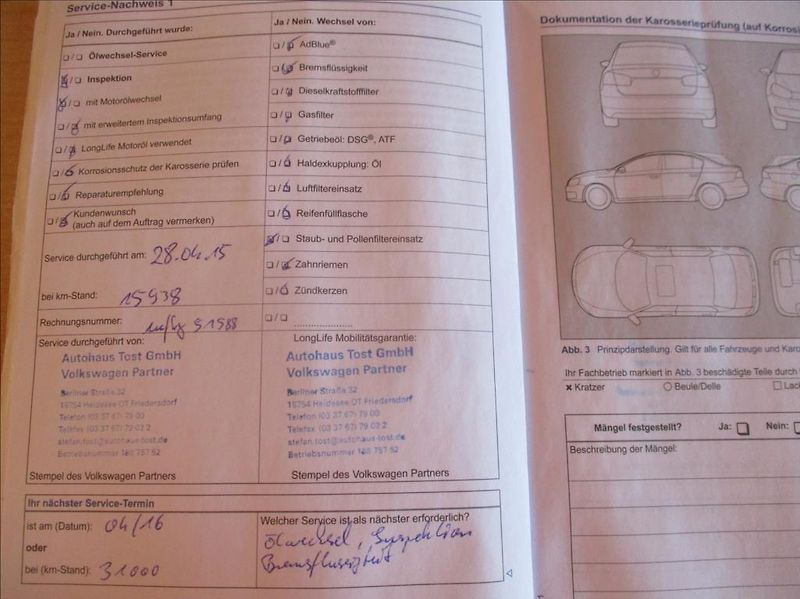 Service-Nachweis 1
Ja / Nein. Durchgeführt wurde:
Ölwechsel-Service
Inspektion
mit Motorölwechsel
mit erweitertem Inspektionsumfang
LongLife Motoröl verwendet
Korrosionsschutz der Karosserie prüfen
Reparaturempfehlung
Kundenwunsch
(auch auf dem Auftrag vermerken)
Service durchgeführt am: 28.04.15
bei km-Stand: 15938
Rechnungsnummer:
Service durchgeführt von:
Autohaus Tost GmbH
Volkswagen Partner
Berliner Straße 32
15754 Heidesee OT Friedersdorf
Telefon (03 37 67) 79 00
Telefax (03 37 67) 79 02 2
stefan.tost@autohaus-tost.de
Betriebsnummer 188 757 52
Stempel des Volkswagen Partners
Ja / Nein. Wechsel von:
AdBlue®
Bremsflüssigkeit
Dieselkraftstofffilter
Gasfilter
Getriebeöl: DSG®, ATF
Haldexkupplung: Öl
Luftfiltereinsatz
Reifenfüllflasche
Staub- und Pollenfiltereinsatz
Zahnriemen
Zündkerzen
LongLife Mobilitätsgarantie:
Autohaus Tost GmbH
Volkswagen Partner
Berliner Straße 32
15754 Heidesee OT Friedersdorf
Telefon (03 37 67) 79 00
Telefax (03 37 67) 79 02 2
stefan.tost@autohaus-tost.de
Betriebsnummer 188 757 52
Stempel des Volkswagen Partners
Ihr nächster Service-Termin
ist am (Datum): 04/16
oder
bei (km-Stand): 31000
Welcher Service ist als nächster erforderlich?
Ölwechsel, Inspektion
Bremsflüssigkeit
Dokumentation der Karosserieprüfung (auf
Abb. 3 Prinzipdarstellung. Gilt für alle Fahrzeuge und
Ihr Fachbetrieb markiert in Abb. 3 beschädigte Teile durch
× Kratzer
Beule/Delle
Mängel festgestellt? Ja: Nein:
Beschreibung der Mängel: